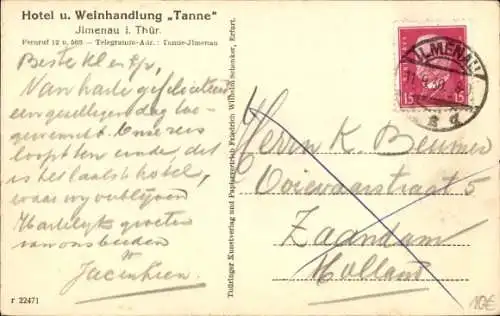 Hotel u. Weinhandlung „Tanne"
Jlmenau i. Thür.
Fernruf 12 u. 569 — Telegramm-Adr.: Tanne-Jlmenau
Beste
Van harte gefeliciteerd
een gezelligen dag toe-
gewenscht. Onze reis
loopt ten einde, dit
is het laatste hotel,
waar wy verblyven
Hartelyke groeten
van ons beiden
r 22471
Thüringer Kunstverlag und Papiervertrieb Friedrich Wilhelm Schenker, Erfurt.
ILMENAU
15 15
Heeren K. Bleumer
Ooievaarstraat 5
Zaandam
Holland
10€